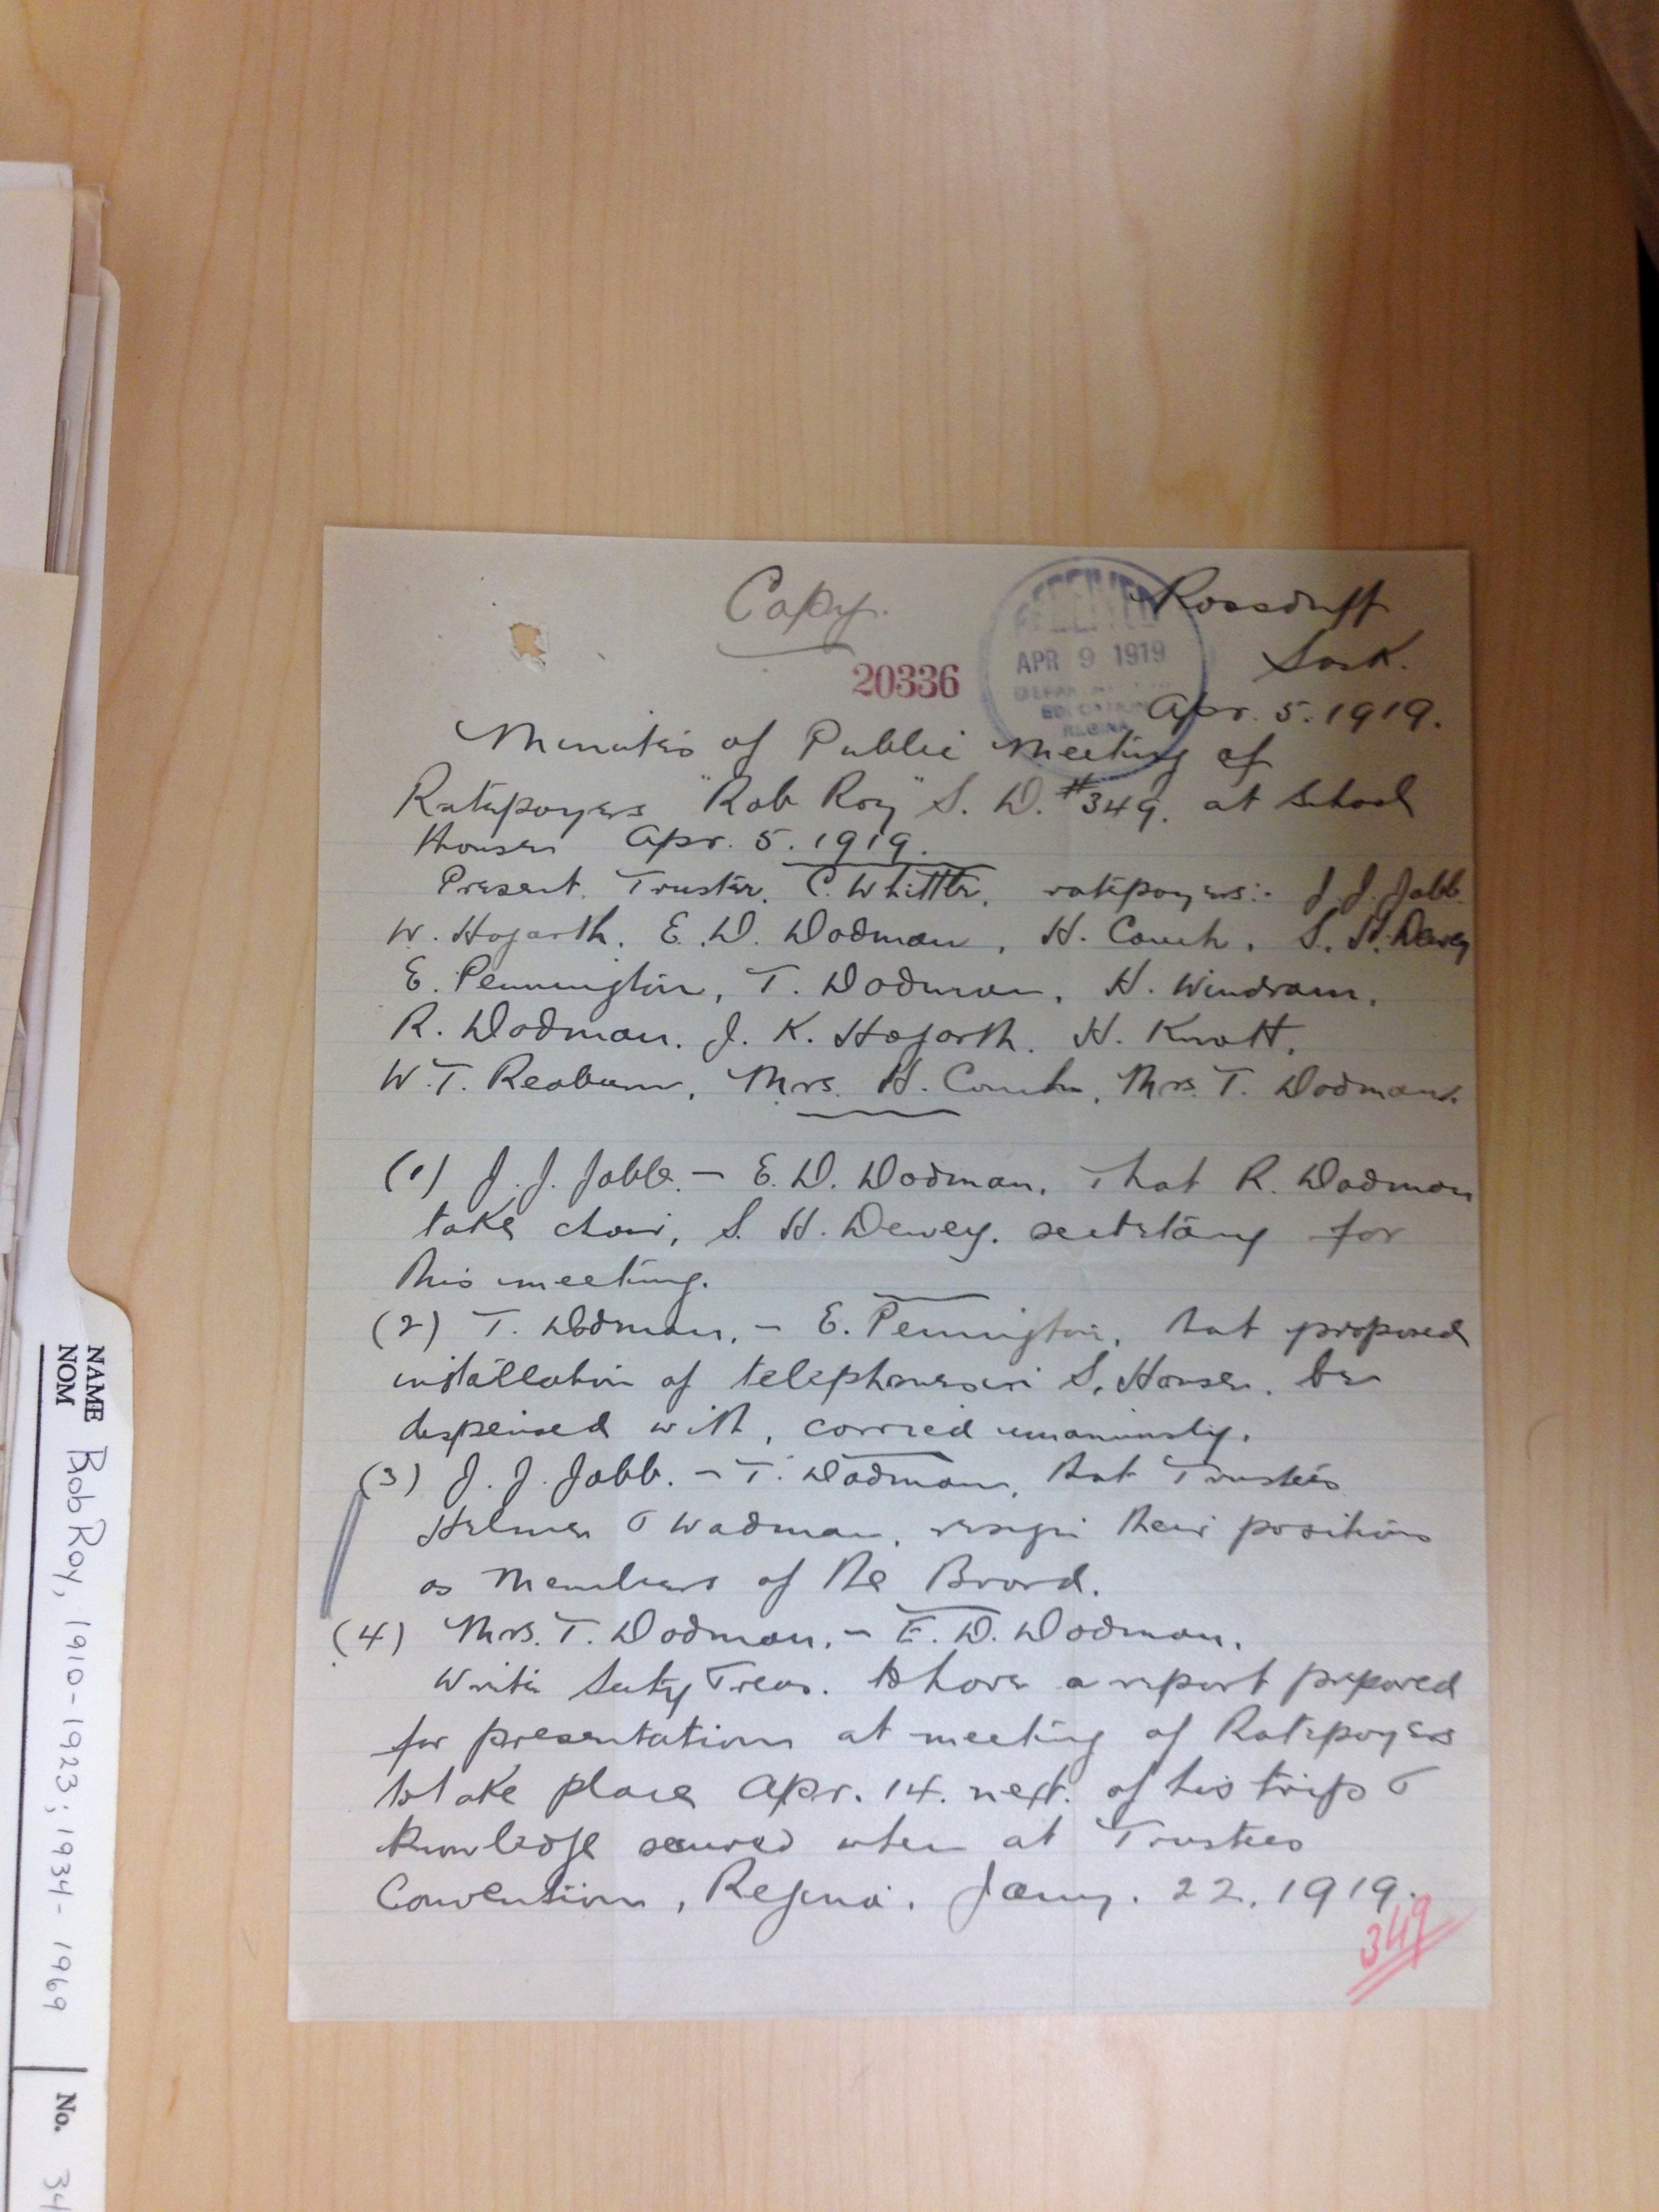 Copy.
Rossduff
Sask.
20336
RECEIVED
APR 9 1919
DEPARTMENT OF
EDUCATION
REGINA
Apr. 5. 1919.
Minutes of Public Meeting of
Ratepayers "Rob Roy" S. D. #349. at School
House Apr. 5. 1919.
Present. Trustee. C. Whittle. ratepayers:- J. J. Jabb.
W. Hogarth. E. D. Dodman, H. Couch, S. H. Dewey
E. Pennington, T. Dodman, H. Windram.
R. Dodman. J. K. Hogarth. H. Knott.
W. T. Reaburn, Mrs. H. Couch, Mrs. T. Dodman.
(1) J. J. Jabb. - E. D. Dodman. That R. Dodman
take chair, S. H. Dewey. secretary for
this meeting.
(2) T. Dodman. - E. Pennington, that proposed
installation of telephone in S. House. be
dispensed with, carried unanimously.
(3) J. J. Jabb. - T. Dodman, that Trustees
Helmer & Wadman, resign their positions
as Members of the Board.
(4) Mrs. T. Dodman. - E. D. Dodman.
Write Secty Treas. to have a report prepared
for presentation at meeting of Ratepayers
to take place Apr. 14. next. of his trip &
knowledge secured when at Trustees
Convention, Regina. Jany. 22. 1919.
349
NAME
NOM
Bob Roy, 1910-1923; 1934-1969
No.
34